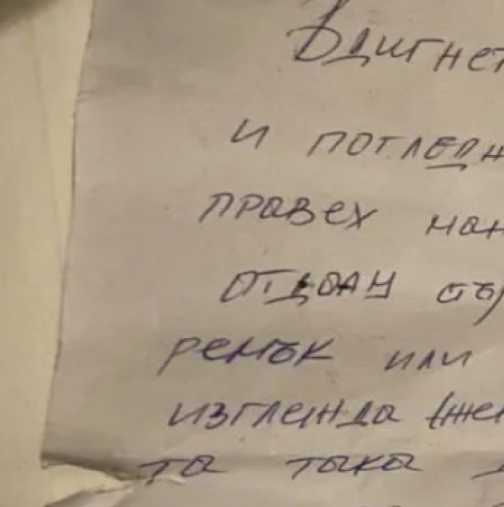 Вдигнет
и погледн
правех ман
отдолу съ
ремък или
изглежда (же
та така